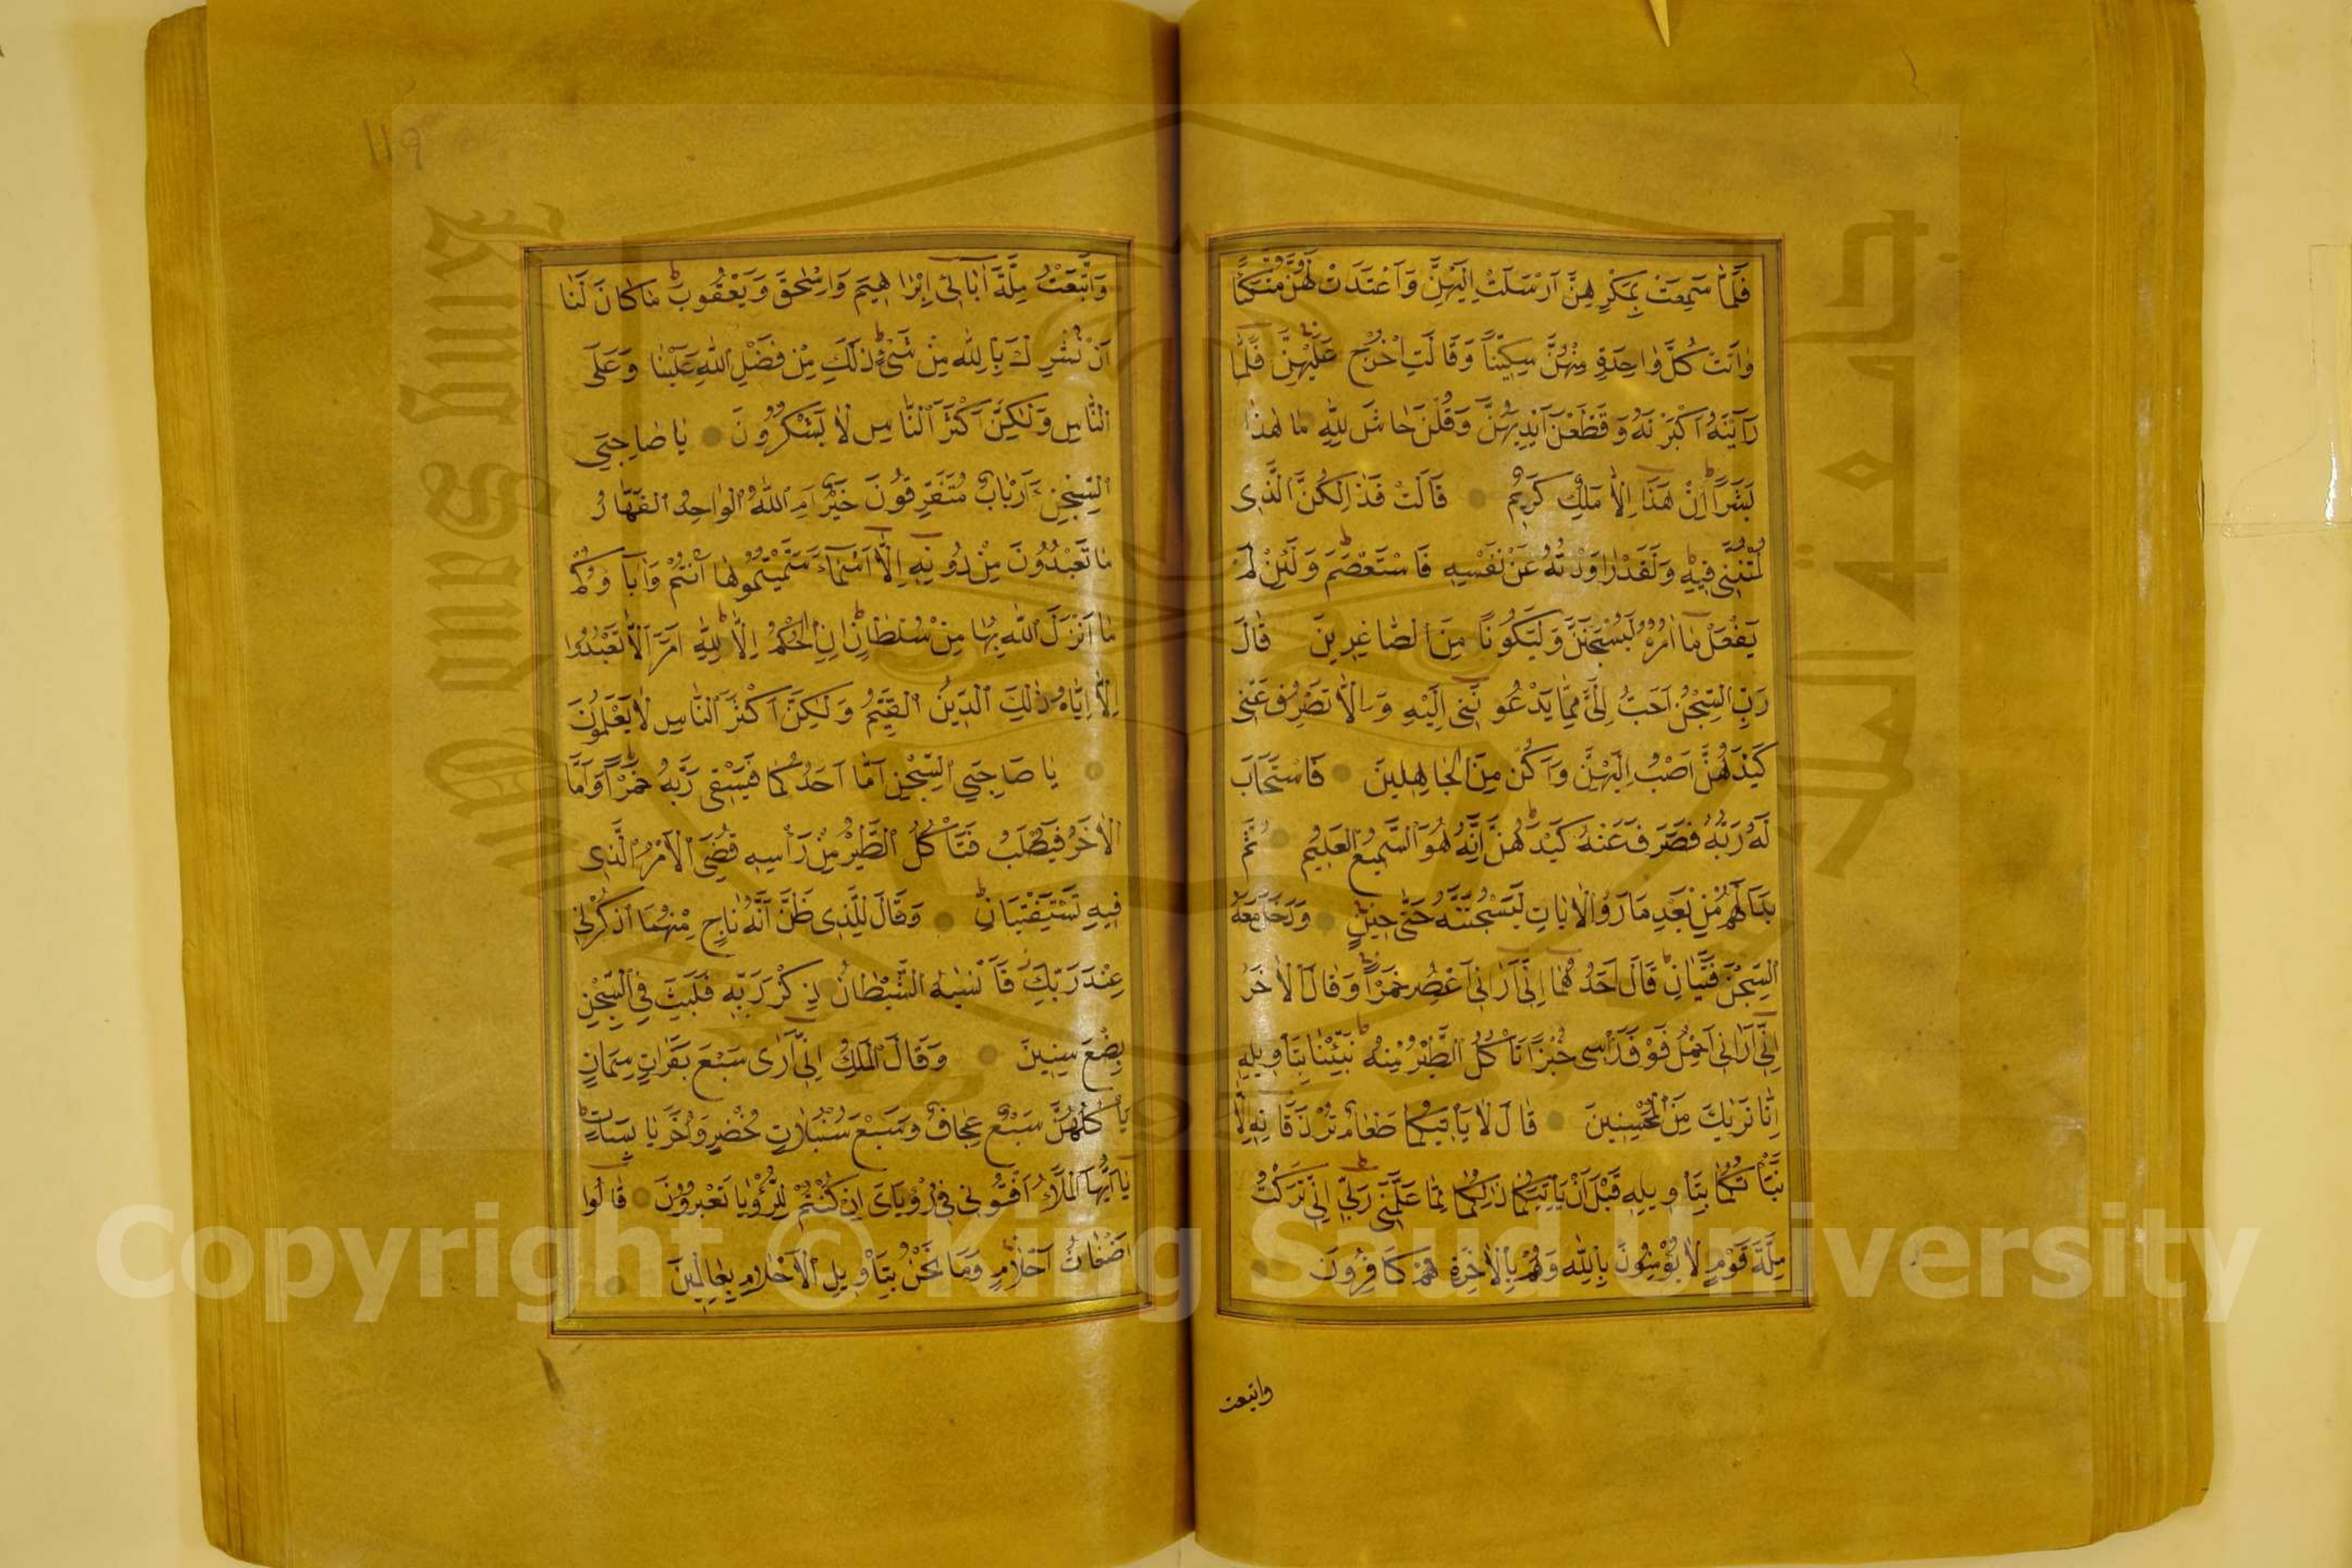 فَلَمَّا سَمِعَتْ بِمَكْرِهِنَّ اَرْسَلَتْ اِلَيْهِنَّ وَاَعْتَدَتْ لَهُنَّ مُتَّكَـًٔا
وٰاتَتْ كُلَّ وٰاحِدَةٍ مِنْهُنَّ سِكِّينًا وَقَالَتِ اخْرُجْ عَلَيْهِنَّ فَلَمَّا
رَاَيْنَهُ اَكْبَرْنَهُ وَقَطَّعْنَ اَيْدِيَهُنَّ وَقُلْنَ حَاشَ لِلّٰهِ مَا هٰذَا
بَشَرًا اِنْ هَذَا اِلَّا مَلَكٌ كَرِيمٌ قَالَتْ فَذٰلِكُنَّ الَّذِى
لُمْتُنَّنِى فِيهِ وَلَقَدْ رَاوَدْتُهُ عَنْ نَفْسِهِ فَاسْتَعْصَمَ وَلَئِنْ لَمْ
يَفْعَلْ مَا اٰمُرُهُ لَيُسْجَنَنَّ وَلَيَكُونًا مِنَ الصَّاغِرِينَ قَالَ
رَبِّ السِّجْنُ اَحَبُّ اِلَىَّ مِمَّا يَدْعُونَنِى اِلَيْهِ وَاِلَّا تَصْرِفْ عَنِّى
كَيْدَهُنَّ اَصْبُ اِلَيْهِنَّ وَاَكُنْ مِنَ الْجَاهِلِينَ فَاسْتَجَابَ
لَهُ رَبُّهُ فَصَرَفَ عَنْهُ كَيْدَهُنَّ اِنَّهُ هُوَ السَّمِيعُ الْعَلِيمُ ثُمَّ
بَدَا لَهُمْ مِنْ بَعْدِ مَا رَاَوُا الْاٰيَاتِ لَيَسْجُنُنَّهُ حَتَّى حِينٍ وَدَخَلَ مَعَهُ
السِّجْنَ فَتَيَانِ قَالَ اَحَدُهُمَا اِنِّى اَرَانِى اَعْصِرُ خَمْرًا وَقَالَ الْاٰخَرُ
اِنِّى اَرَانِى اَحْمِلُ فَوْقَ رَاْسِى خُبْزًا تَاْكُلُ الطَّيْرُ مِنْهُ نَبِّئْنَا بِتَاْوِيلِهِ
اِنَّا نَرٰيكَ مِنَ الْمُحْسِنِينَ قَالَ لَا يَاْتِيكُمَا طَعَامٌ تُرْزَقَانِهِ اِلَّا
نَبَّاْتُكُمَا بِتَاْوِيلِهِ قَبْلَ اَنْ يَاْتِيَكُمَا ذٰلِكُمَا مِمَّا عَلَّمَنِى رَبِّى اِنِّى تَرَكْتُ
مِلَّةَ قَوْمٍ لَا يُؤْمِنُونَ بِاللّٰهِ وَهُمْ بِالْاٰخِرَةِ هُمْ كَافِرُونَ
واتبعت
١١٩
وَاتَّبَعْتُ مِلَّةَ اٰبَائِى اِبْرٰاهِيمَ وَاِسْحٰقَ وَيَعْقُوبَ مَا كَانَ لَنَا
اَنْ نُشْرِكَ بِاللّٰهِ مِنْ شَىْءٍ ذٰلِكَ مِنْ فَضْلِ اللّٰهِ عَلَيْنَا وَعَلَى
النَّاسِ وَلٰكِنَّ اَكْثَرَ النَّاسِ لَا يَشْكُرُونَ يَا صَاحِبَىِ
السِّجْنِ ءَاَرْبَابٌ مُتَفَرِّقُونَ خَيْرٌ اَمِ اللّٰهُ الْوٰاحِدُ الْقَهَّارُ
مَا تَعْبُدُونَ مِنْ دُونِهِ اِلَّا اَسْمَاءً سَمَّيْتُمُوهَا اَنْتُمْ وَاٰبَاؤُكُمْ
مَا اَنْزَلَ اللّٰهُ بِهَا مِنْ سُلْطَانٍ اِنِ الْحُكْمُ اِلَّا لِلّٰهِ اَمَرَ اَلَّا تَعْبُدُوا
اِلَّا اِيَّاهُ ذٰلِكَ الدِّينُ الْقَيِّمُ وَلٰكِنَّ اَكْثَرَ النَّاسِ لَا يَعْلَمُونَ
يَا صَاحِبَىِ السِّجْنِ اَمَّا اَحَدُكُمَا فَيَسْقِى رَبَّهُ خَمْرًا وَاَمَّا
الْاٰخَرُ فَيُصْلَبُ فَتَاْكُلُ الطَّيْرُ مِنْ رَاْسِهِ قُضِىَ الْاَمْرُ الَّذِى
فِيهِ تَسْتَفْتِيَانِ وَقَالَ لِلَّذِى ظَنَّ اَنَّهُ نَاجٍ مِنْهُمَا اذْكُرْنِى
عِنْدَ رَبِّكَ فَاَنْسٰيهُ الشَّيْطَانُ ذِكْرَ رَبِّهِ فَلَبِثَ فِى السِّجْنِ
بِضْعَ سِنِينَ وَقَالَ الْمَلِكُ اِنِّى اَرٰى سَبْعَ بَقَرَاتٍ سِمَانٍ
يَاْكُلُهُنَّ سَبْعٌ عِجَافٌ وَسَبْعَ سُنْبُلَاتٍ خُضْرٍ وَاُخَرَ يَابِسَاتٍ
يَا اَيُّهَا الْمَلَاُ اَفْتُونِى فِى رُؤْيَاىَ اِنْ كُنْتُمْ لِلرُّؤْيَا تَعْبُرُونَ قَالُوا
اَضْغَاثُ اَحْلَامٍ وَمَا نَحْنُ بِتَاْوِيلِ الْاَحْلَامِ بِعَالِمِينَ
King Saud University
جامعة الملك سعود
1957
Copyright © King Saud University